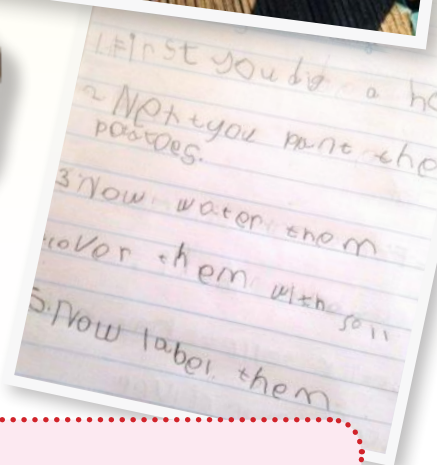 1 First you dig a ho
2 Next you pant the
paotoes.
3 Now water them
cover them with soil
5. Now label them